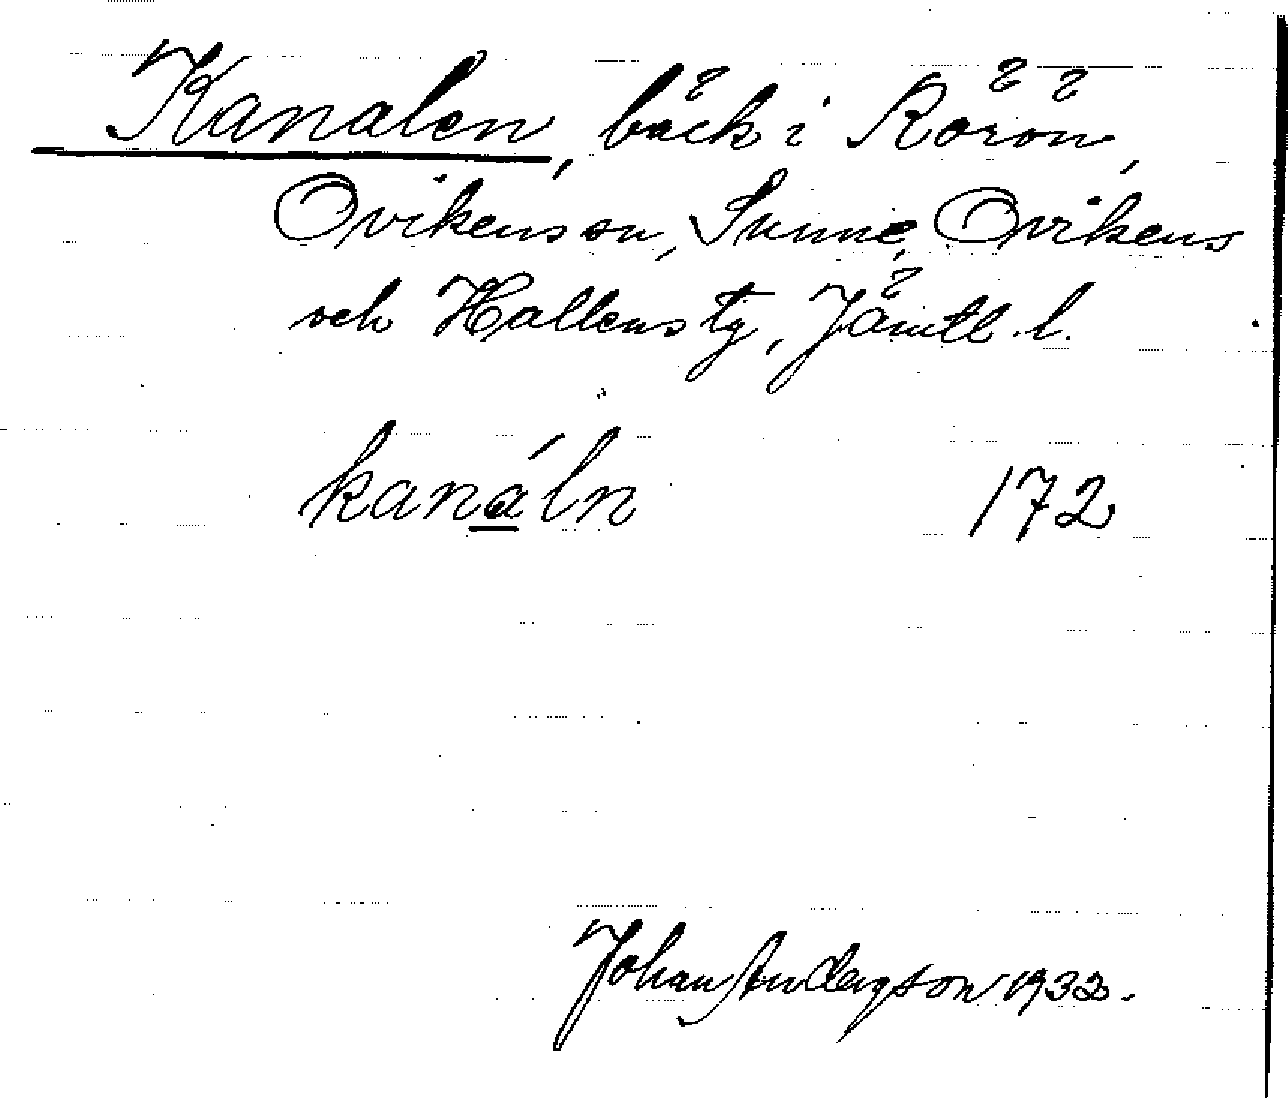 Kanalen, bäck i Rörön,
Ovikens sn, Sunne, Ovikens
och Hallens tg, Jämtl. l.
kanáln 172
Johan Anderson 1933.